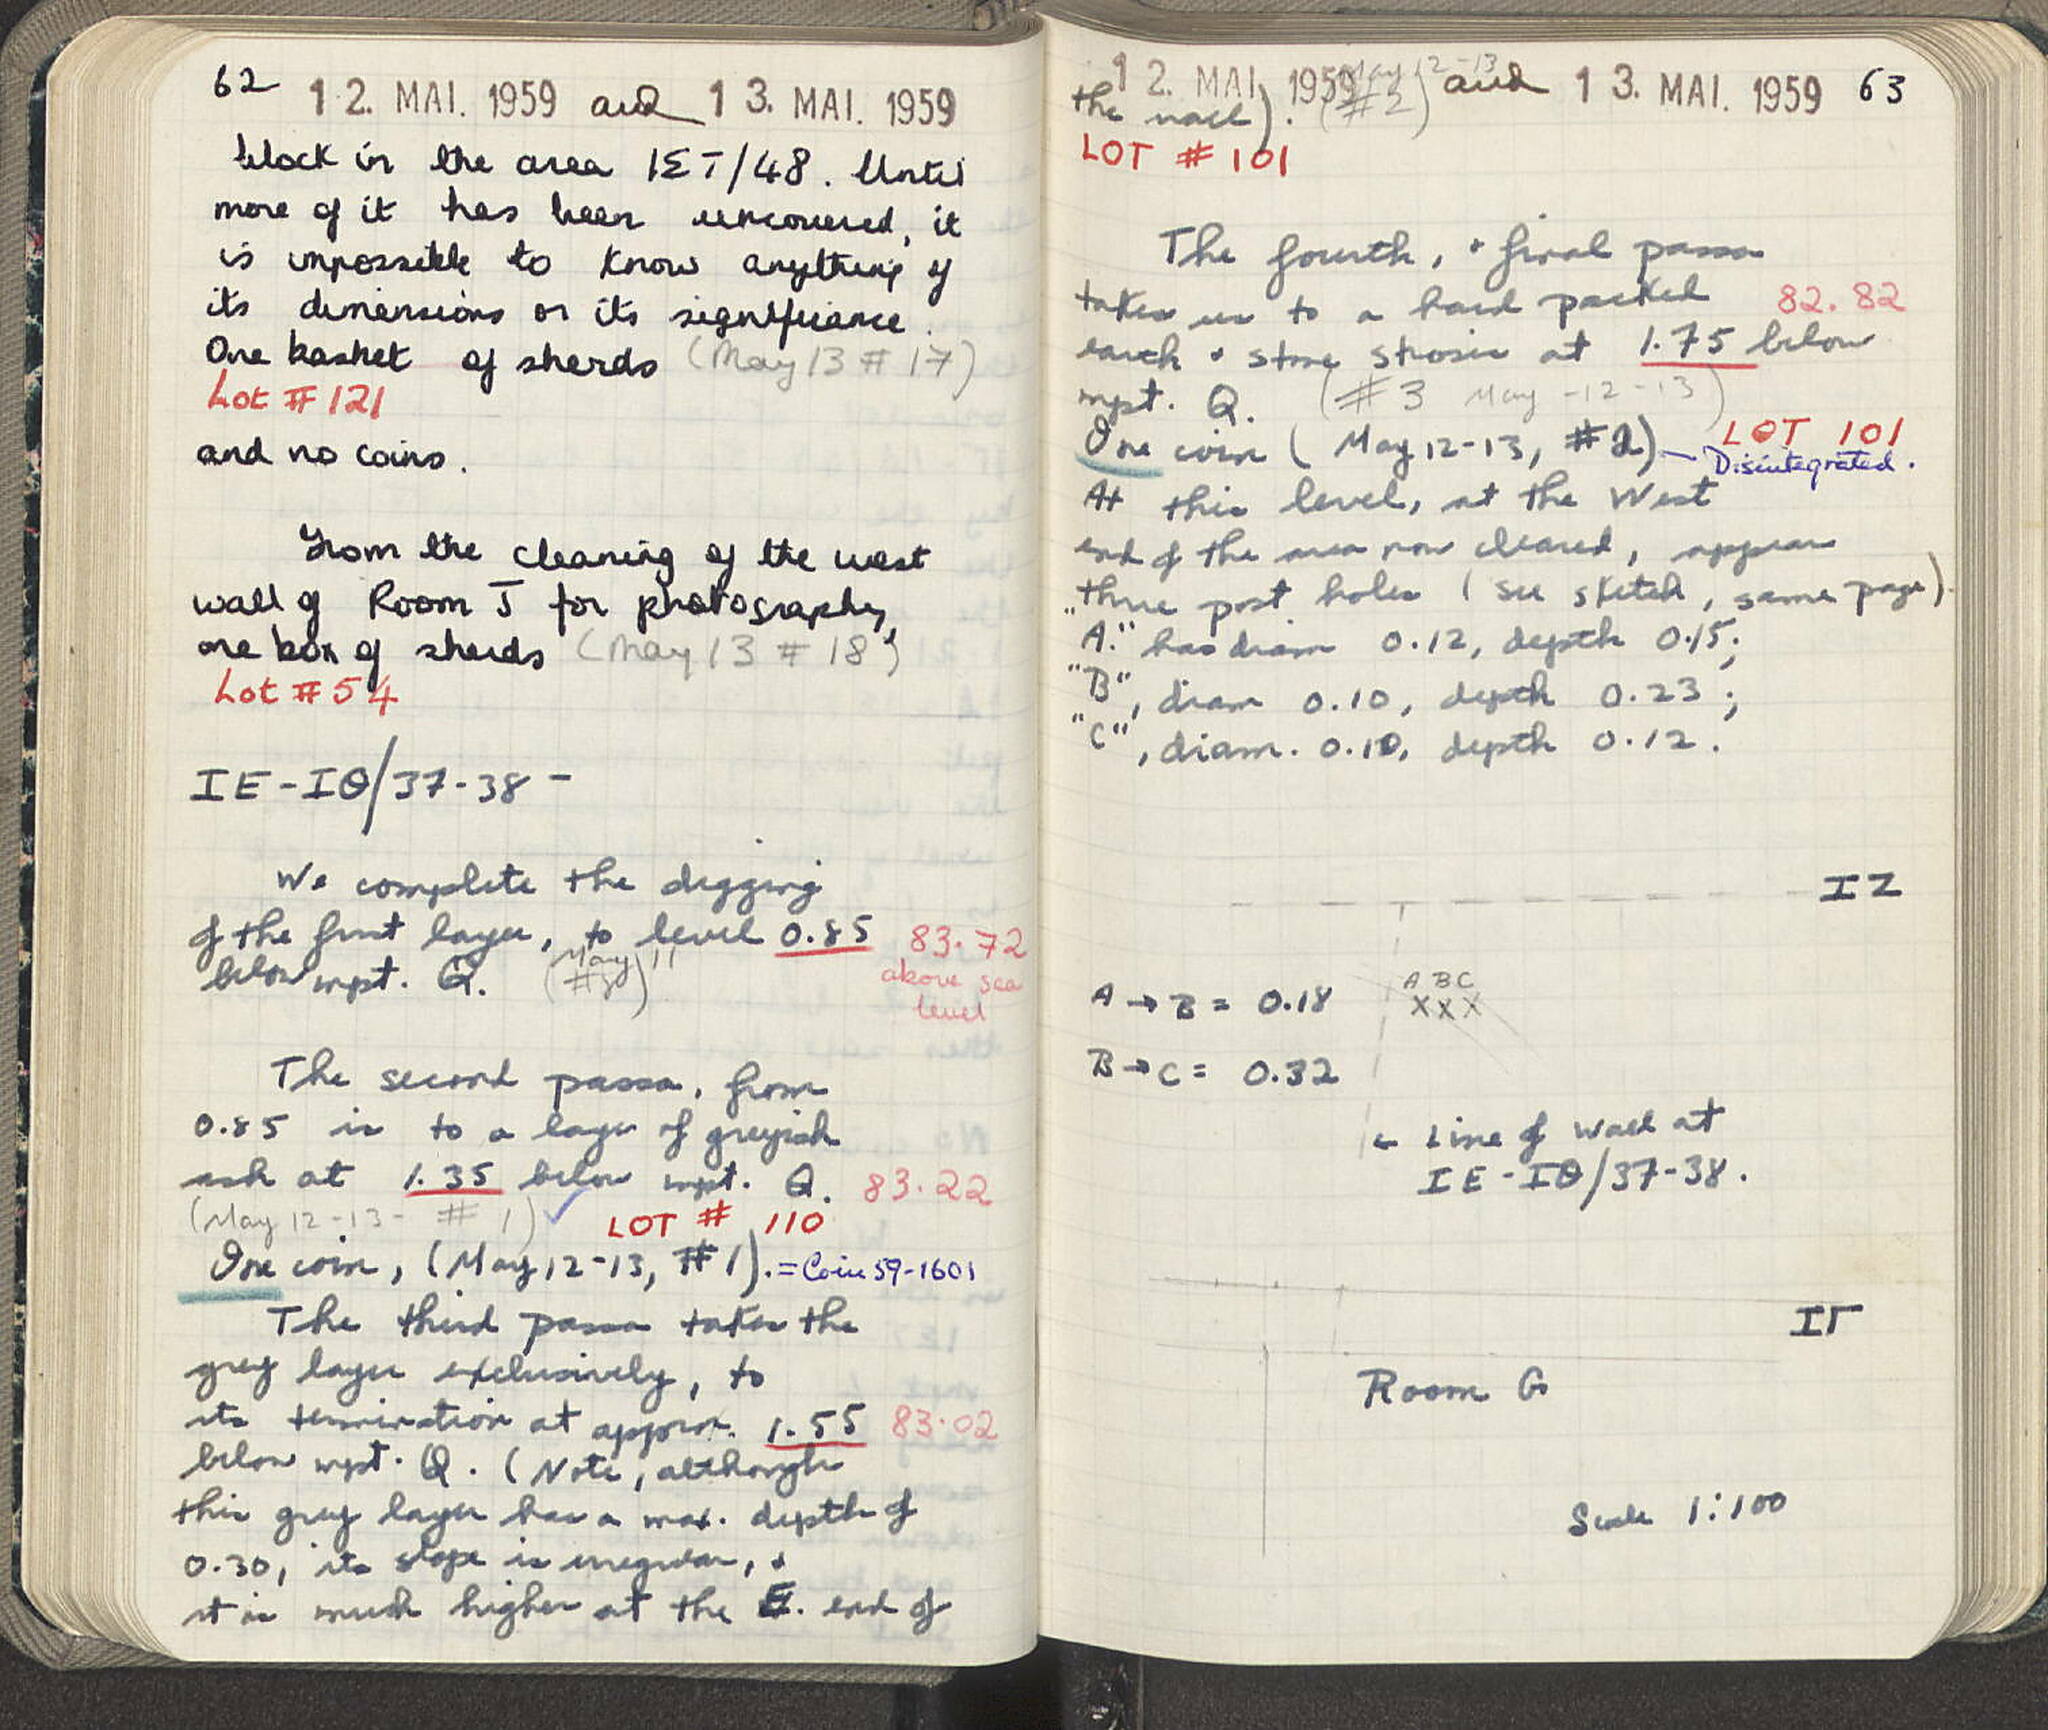 62 12. MAI. 1959 and 13. MAI. 1959
block in the area IΣT/48. Until
more of it has been uncovered, it
is impossible to know anything of
its dimensions or its significance.
One basket of sherds (May 13 # 17)
Lot # 121
and no coins.
From the cleaning of the west
wall of Room J for photography,
one box of sherds (May 13 # 18)
Lot # 54
IE-IΘ/37-38 -
We complete the digging
of the first layer, to level 0.85 83.72
below wpt. Q. (May 11 above sea
level
The second passa, from
0.85 is to a layer of greyish
ash at 1.35 below wpt. Q. 83.22
(May 12-13- # 1) LOT # 110
One coin, (May 12-13, # 1). = Coin 59-1601
The third passa takes the
grey layer exclusively, to
its termination at approx. 1.55 83.02
below wpt. Q. (Note, although
this grey layer has a max. depth of
0.30, its slope is irregular, +
it is much higher at the E. end of
12. MAI. 1959 and 13. MAI. 1959 63
the wall). (May 12-13 #2)
LOT # 101
The fourth, + final passa
takes us to a hard packed 82.82
earth + stone strosis at 1.75 below
wpt. Q. (#3 May -12-13)
One coin (May 12-13, #2) - LOT 101
Disintegrated.
At this level, at the West
end of the area now cleared, appear
three post holes (see sketch, same page).
"A." has diam 0.12, depth 0.15;
"B", diam 0.10, depth 0.23;
"C", diam. 0.10, depth 0.12.
IZ
A B C
A → B = 0.18 X X X
B → C = 0.32
← Line of wall at
IE-IΘ/37-38.
IΓ
Room G
Scale 1:100